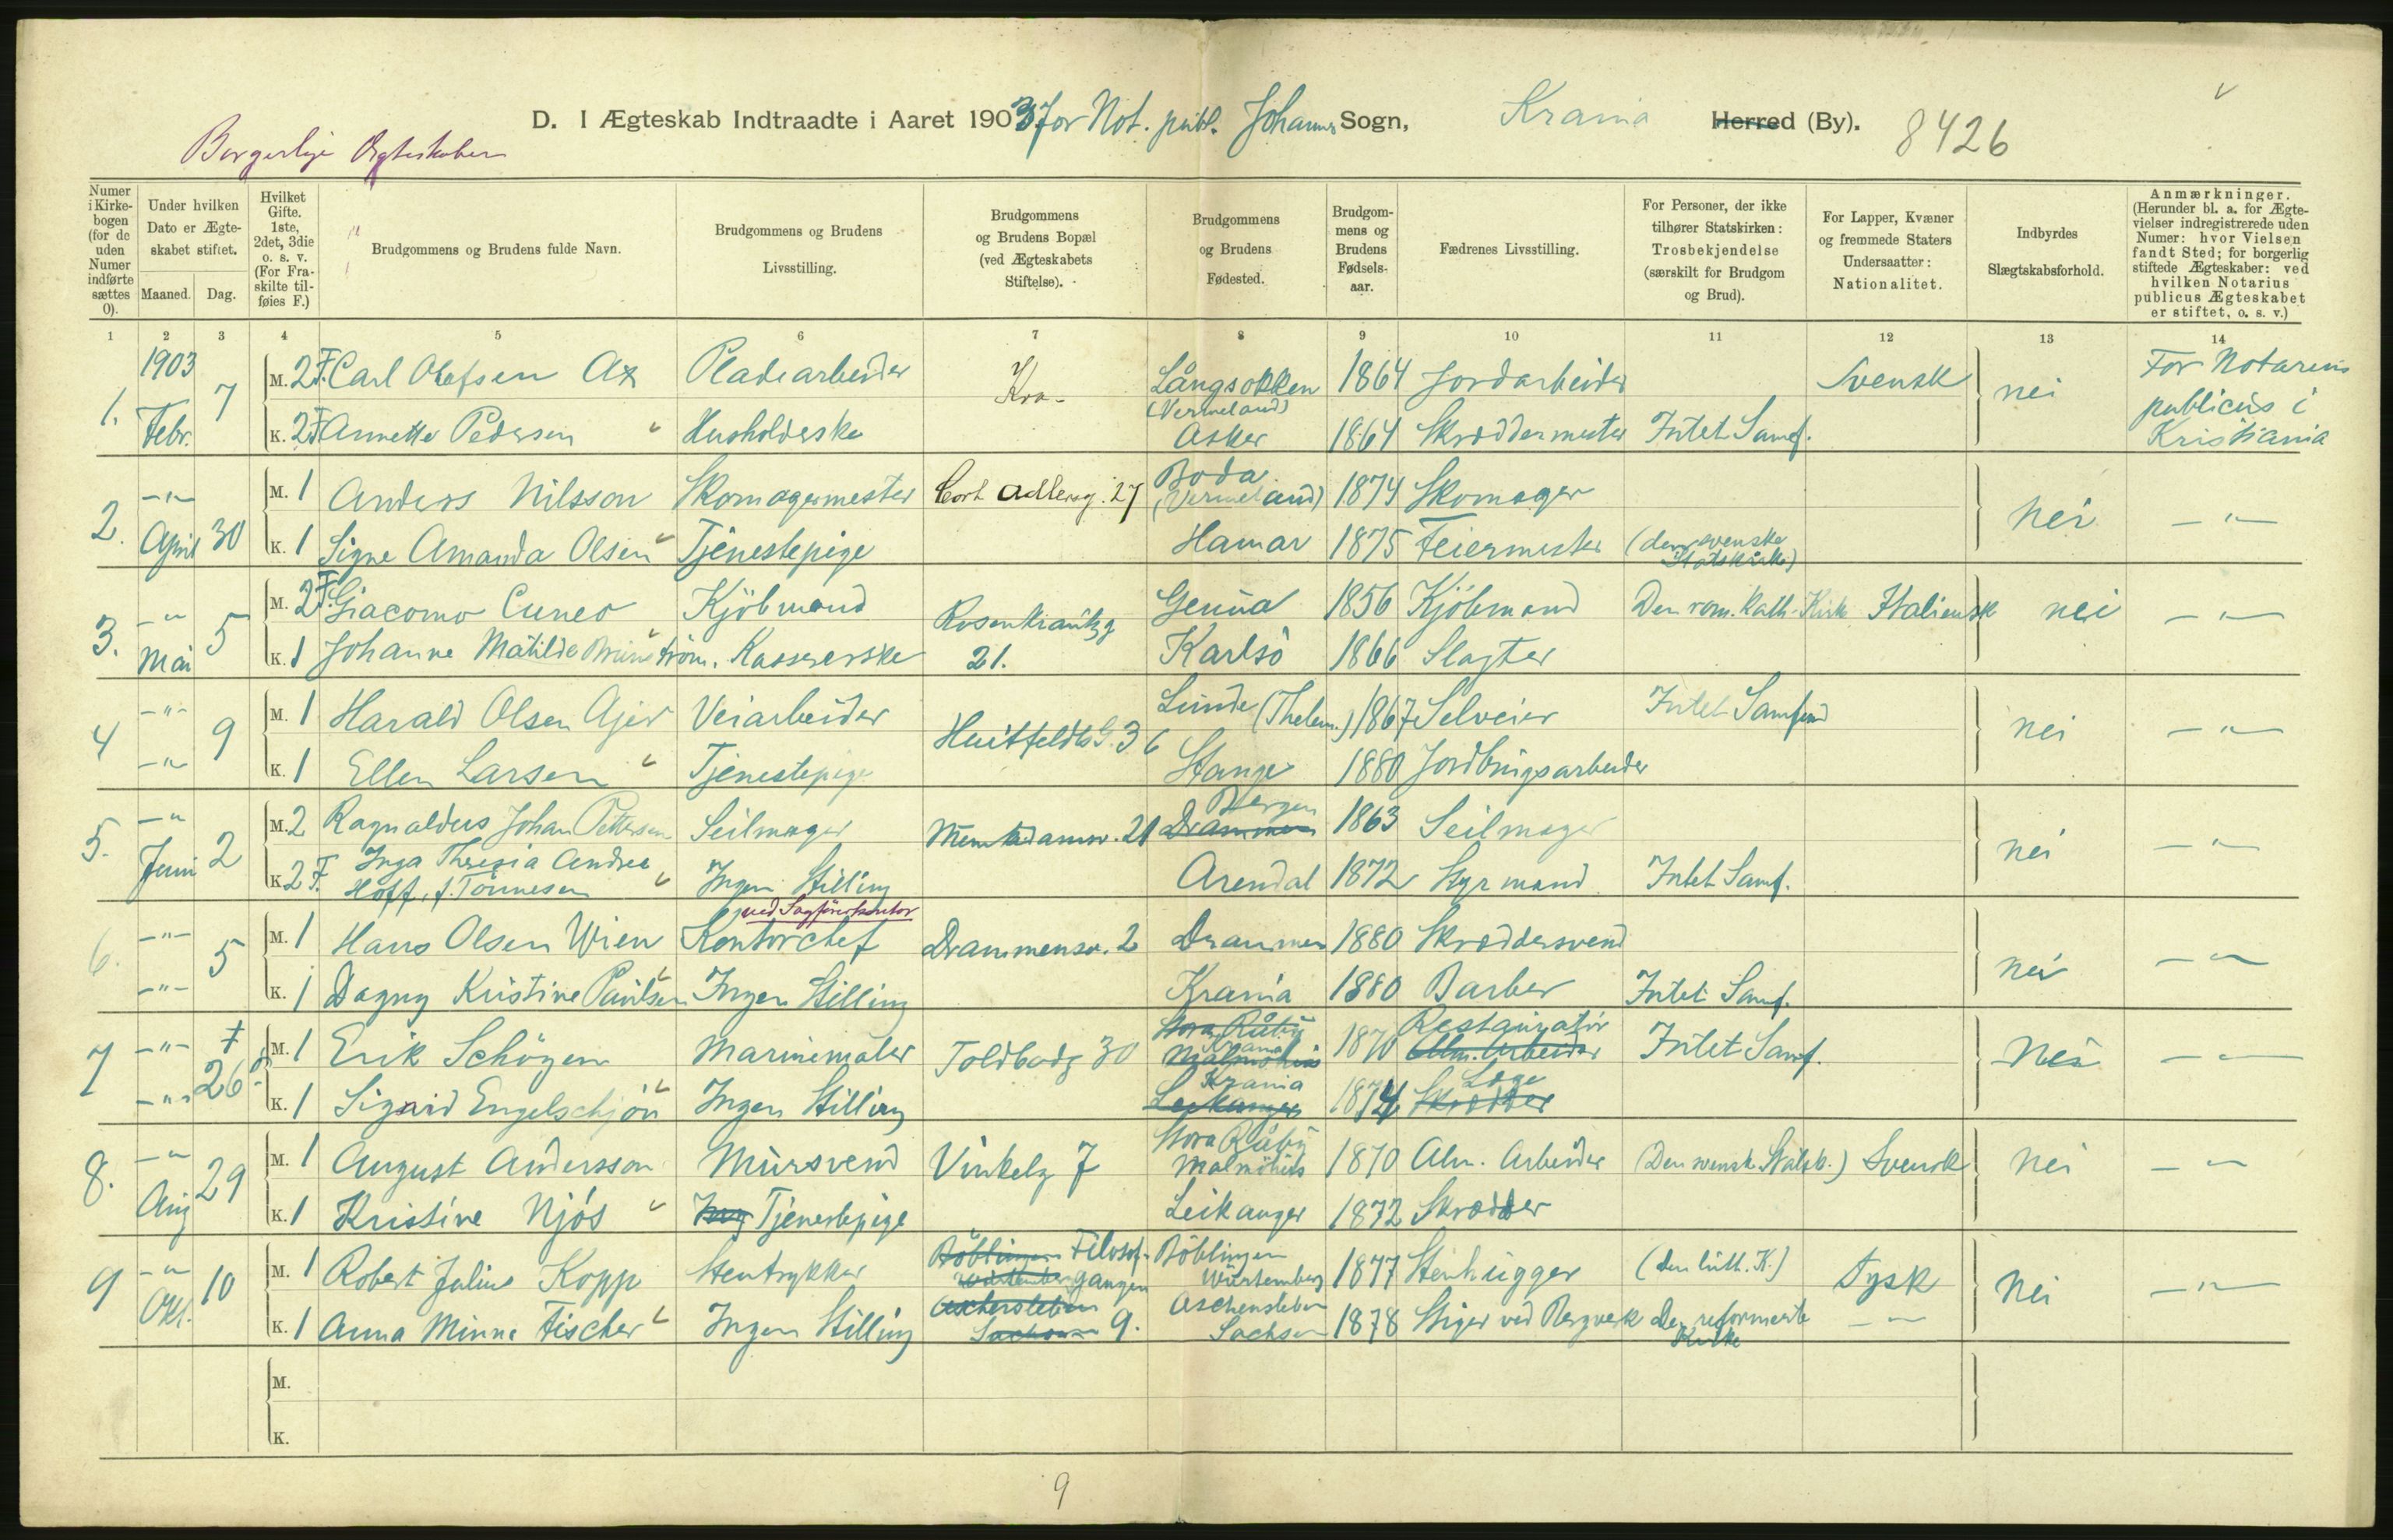 D. I Ægteskab Indtraadte i Aaret 1903 for Not. publ. Johannes Sogn, Krania Herred (By). 8426
Borgerlige Ægteskaber
Numer i Kirkebogen (for de uden Numer indførte sættes 0).
Under hvilken Dato er Ægteskabet stiftet.
Maaned. Dag.
Hvilket Gifte. 1ste, 2det, 3die o. s. v. (For Fraskilte tilføies F.)
Brudgommens og Brudens fulde Navn.
Brudgommens og Brudens Livsstilling.
Brudgommens og Brudens Bopæl (ved Ægteskabets Stiftelse).
Brudgommens og Brudens Fødested.
Brudgommens og Brudens Fødselsaar.
Fædrenes Livsstilling.
For Personer, der ikke tilhører Statskirken: Trosbekjendelse (særskilt for Brudgom og Brud).
For Lapper, Kvæner og fremmede Staters Undersaatter: Nationalitet.
Indbyrdes Slægtskabsforhold.
Anmærkninger. (Herunder bl. a. for Ægtevielser indregistrerede uden Numer: hvor Vielsen fandt Sted; for borgerlig stiftede Ægteskaber: ved hvilken Notarius publicus Ægteskabet er stiftet, o. s. v.)
1 2 3 4 5 6 7 8 9 10 11 12 13 14
1. 1903 Febr. 7
M. 2 F. Carl Olofsen Ax Pladearbeider Kra. Långsokken (Vermeland) 1864 Jordarbeider Svensk nei For Notarius publicus i Kristiania
K. 2 F Annette Pedersen Husholderske Asker 1864 Skræddermester Intet Samf.
2. -"- April 30
M. 1 Anders Nilsson Skomagermester Cort Adlersg. 27 Boda (Vermeland) 1874 Skomager Nei -"-
K. 1 Signe Amanda Olsen Tjenestepige Hamar 1875 Feiermester (den svenske Statskirke)
3. -"- Mai 5
M. 2 F. Giacomo Cuneo Kjöbmand Rosenkrantzg 21. Genua 1856 Kjöbmand Den rom. kath. Kirk Italiensk nei -"-
K. 1 Johanne Matilde Kassererske Karlsö 1866 Slagter
4 -"- -"- 9
M. 1 Harald Olsen Ajer Veiarbeider Huitfeldts G. 36 Lunde (Thelem.) 1867 Selveier Intet Samfund nei -"-
K. 1 Ellen Larsen Tjenestepige Stange 1880 Jordbrugsarbeider
5. -"- Juni 2
M. 2 Ragnaldus Johan Pettersen Seilmager Munkedamsv. 21 Drammen Bergen 1863 Seilmager nei -"-
K. 2 F. Inga Theresia Andrea Hoff, f. Tönnesen Ingen Stilling Arendal 1872 Styrmand Intet Samf.
6. -"- -"- 5
M. 1 Hans Olsen Wien Kontorchef ved Sagförerkontor Drammensv. 2 Drammen 1880 Skræddersvend nei -"-
K. 1 Dagny Kristine Paulsen Ingen Stilling Krania 1880 Barber Intet Samf.
7 -"- -"- 26
M. 1 Erik Schögen Marinemaler Toldbodg 30 Stora Råby Malmöhus Krania 1870 Alm. Arbeider Restauratör Intet Samf. Nei -"-
K. 1 Sigrid Engelschjön Ingen Stilling Leikanger Krania 1874 Skrædder Læge
8. -"- Aug 29
M. 1 August Andersson Mursvend Vinkelg 7 Stora Råby Malmöhus 1870 Alm. Arbeider (Den svensk. Statsk.) Svensk Nei -"-
K. 1 Kristine Njøs Ing Tjenestepige Leikanger 1872 Skrædder
9 -"- Okt. 10
M. 1 Robert Julius Kopp Stentrykker Böblingen Würtemberg Filosofgangen Böblingen Würtemberg 1877 Stenhugger (den luth. K.) Tysk Nei -"-
K. 1 Anna Minna Fischer Ingen Stilling Aschersleben Sachsen 9. Aschersleben Sachsen 1878 Stiger ved Bergværk Den reformerte Kirke -"-
M.
K.
9